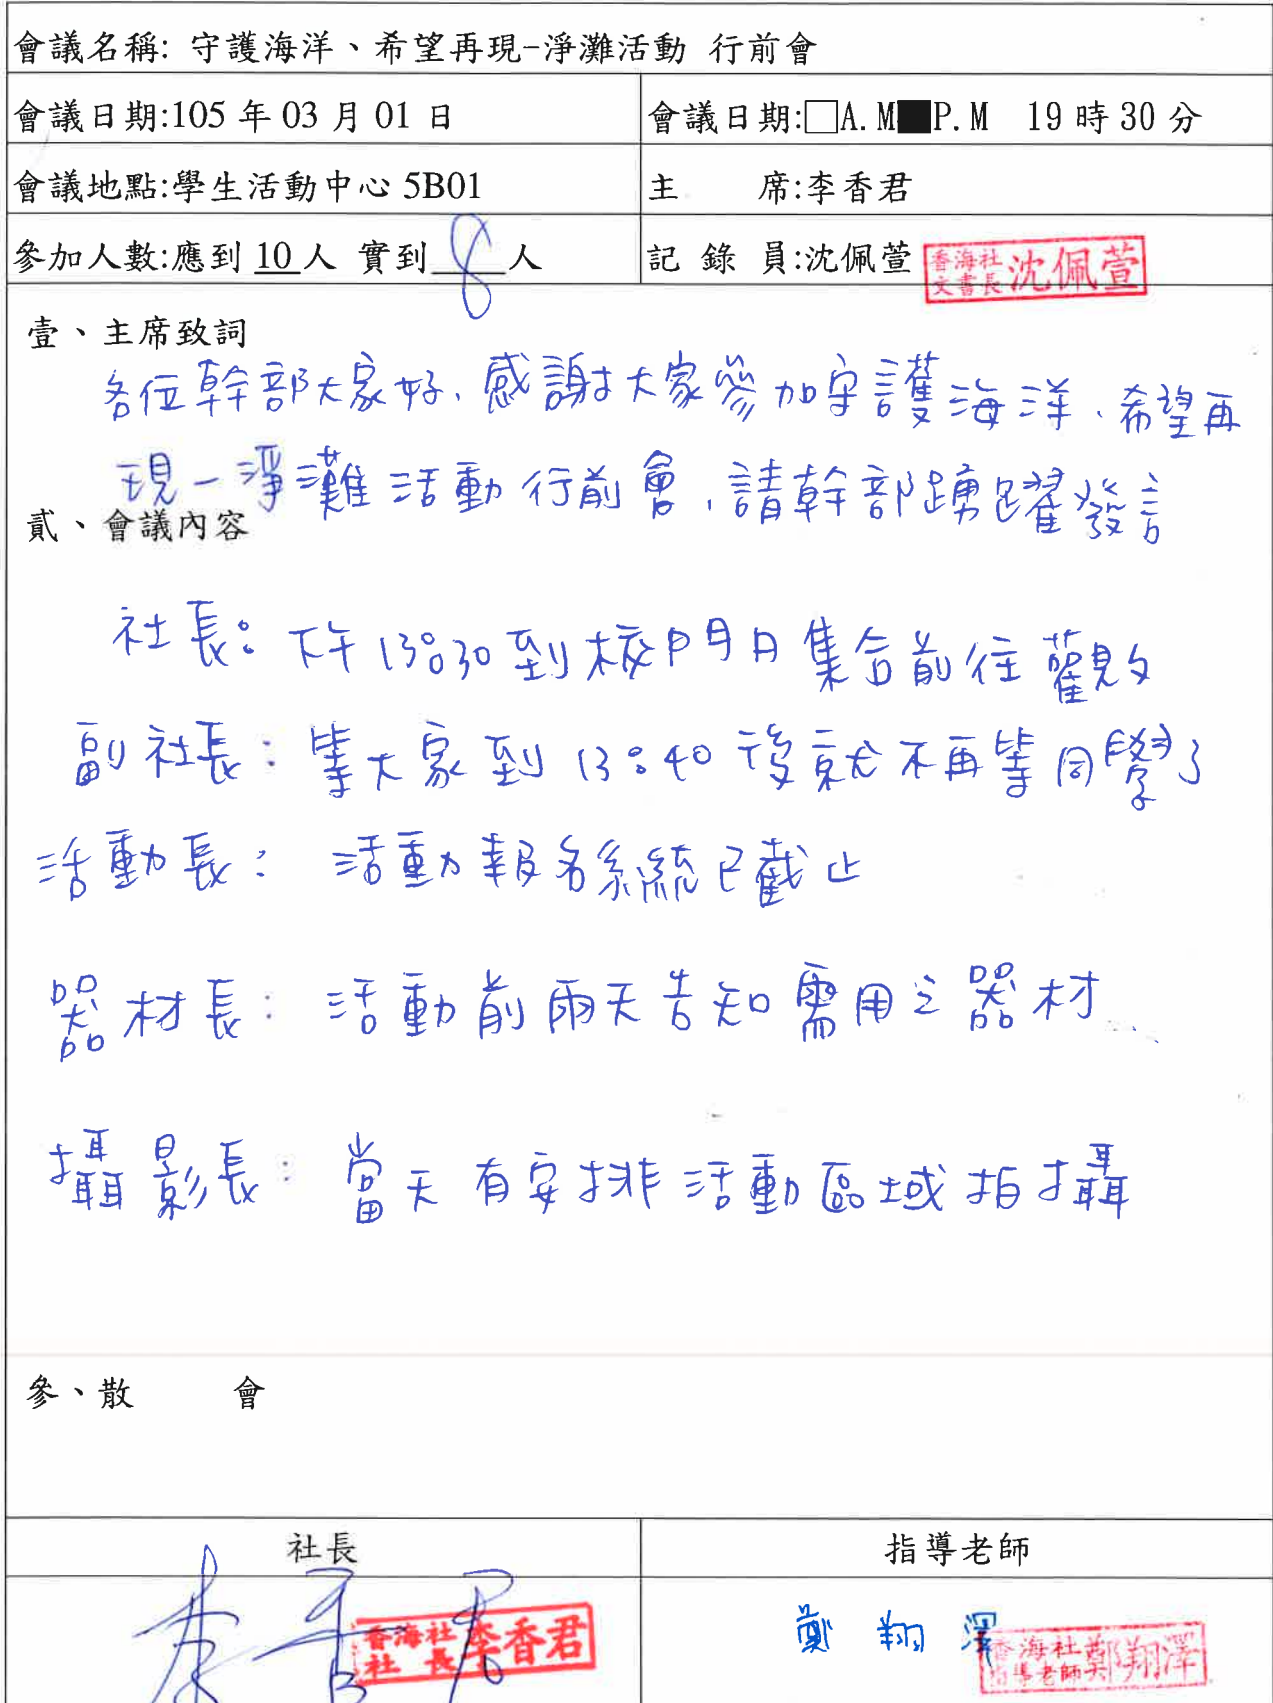 會議名稱: 守護海洋、希望再現-淨灘活動 行前會
會議日期:105 年 03 月 01 日
會議日期:□A.M■P.M 19 時 30 分
會議地點:學生活動中心 5B01
主 席:李香君
參加人數:應到 10 人 實到 8 人
記 錄 員:沈佩萱
香海社
文書長 沈佩萱
壹、主席致詞
各位幹部大家好,感謝大家參加守護海洋、希望再
現-淨灘活動行前會,請幹部踴躍發言
貳、會議內容
社長:下午13:30到校門口集合前往觀
副社長:等大家到13:40後就不再等同學了
活動長:活動報名系統已截止
器材長:活動前兩天告知需用之器材
攝影長:當天有安排活動區域拍攝
參、散 會
社長
指導老師
李香君
香海社
社長 李香君
鄭翔澤
香海社
指導老師 鄭翔澤